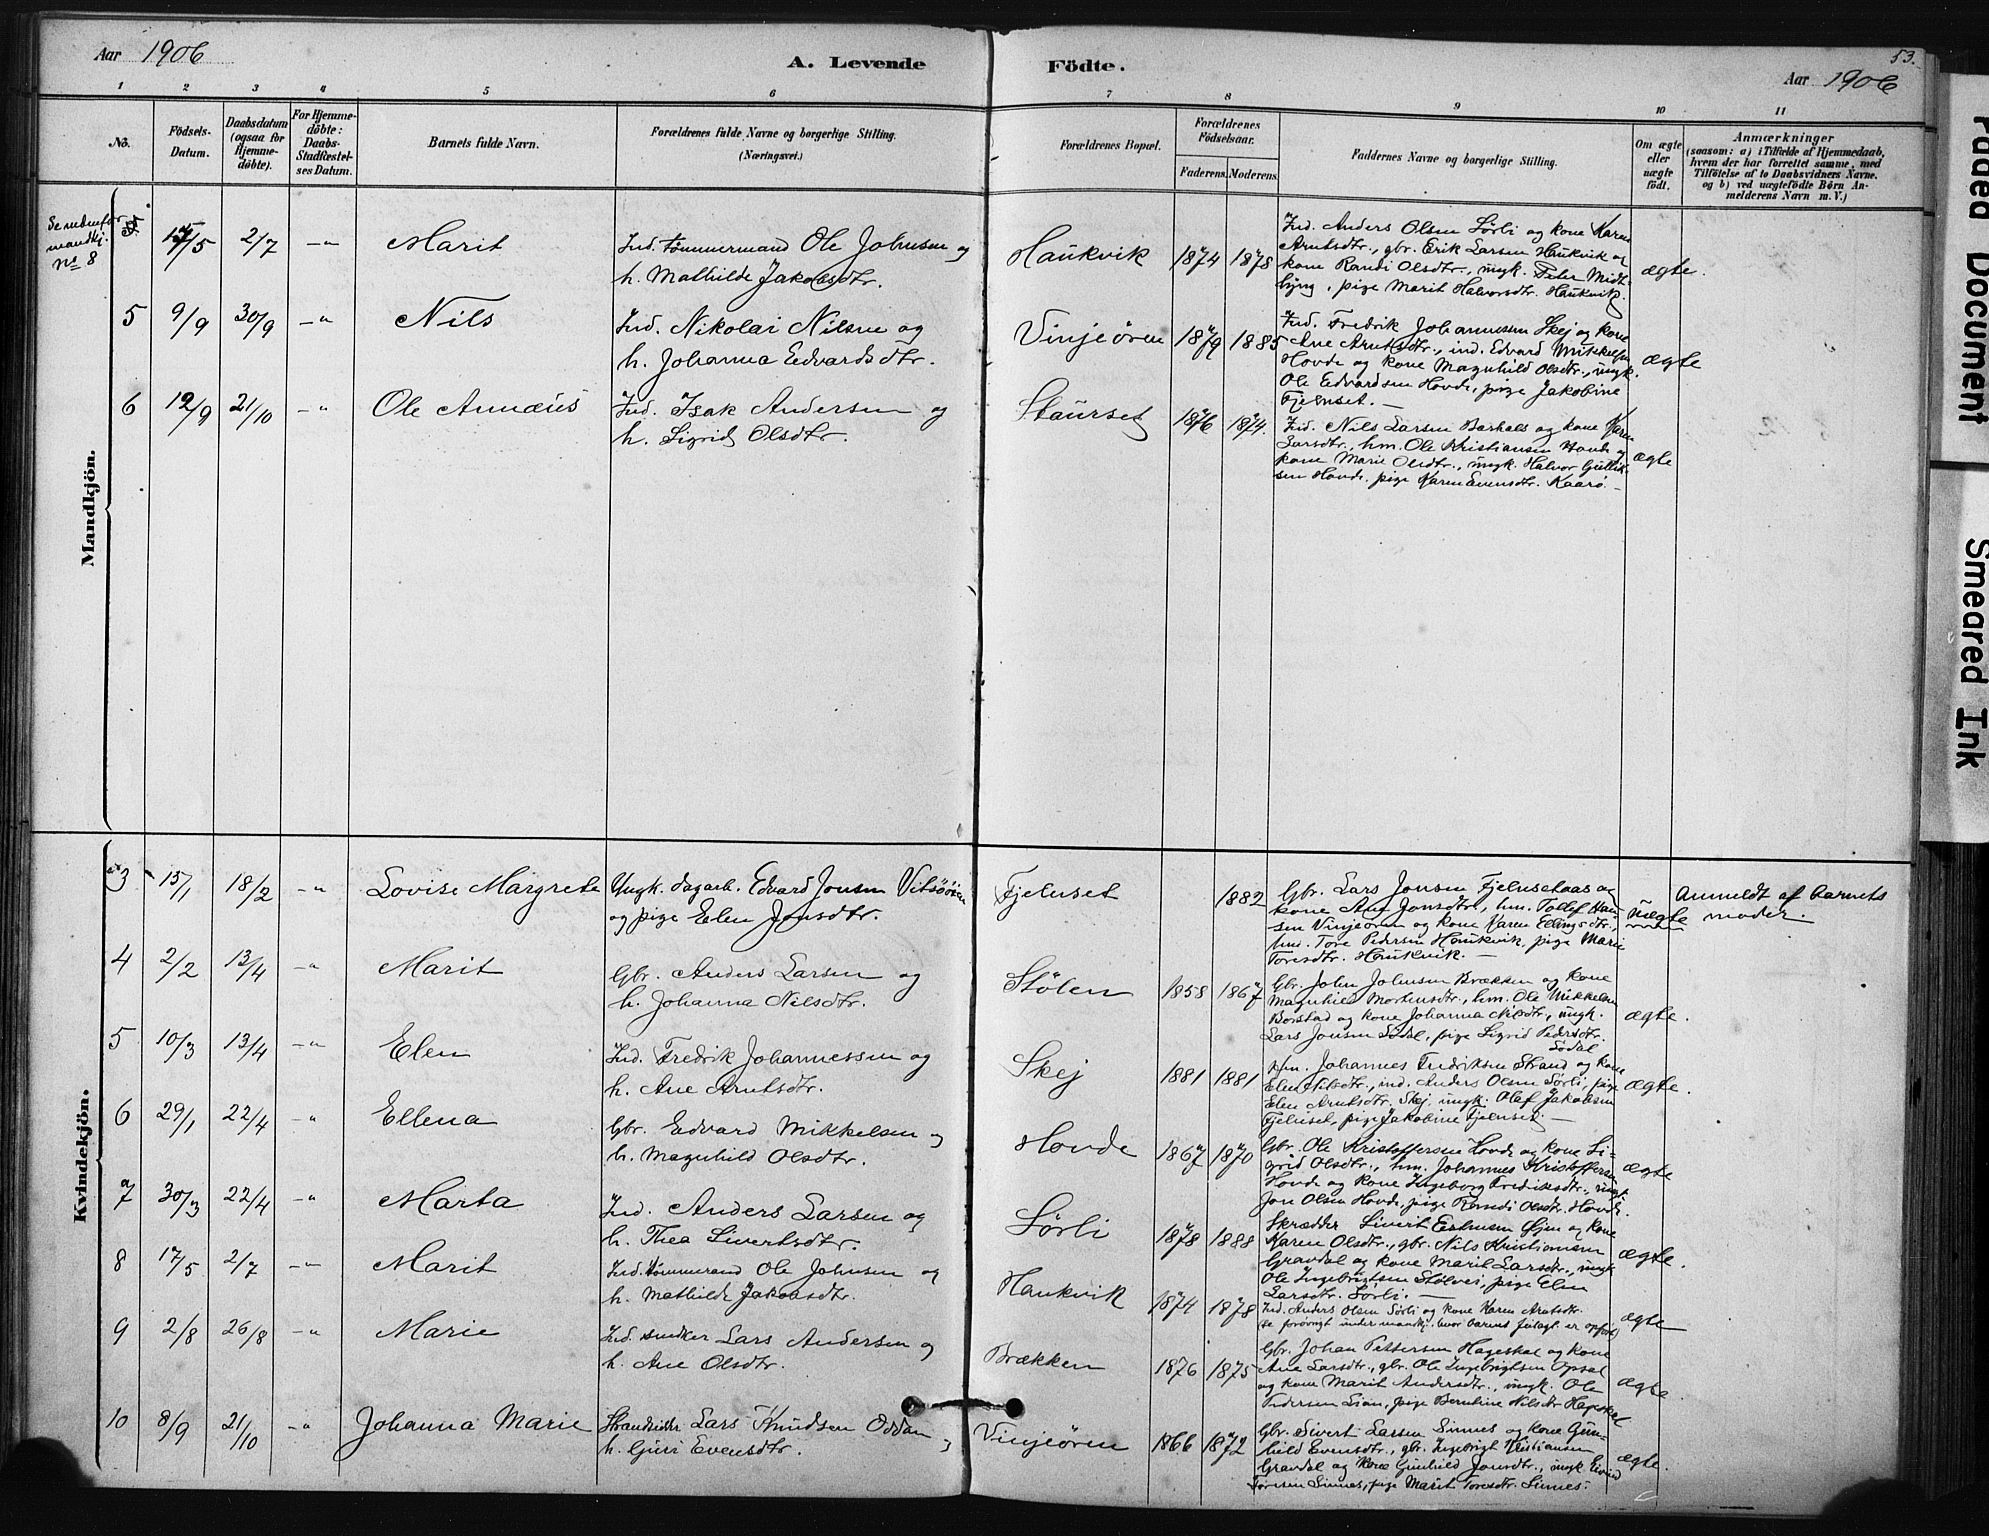 Aar 1906
A. Levende Födte.
53.
Aar 1906
1 2 3 4 5 6 7 8 9 10 11
No.
Födsels-Datum.
Daabsdatum (ogsaa for Hjemmedöbte).
For Hjemmedöbte: Daabs-Stadfæstelses Datum.
Barnets fulde Navn.
Forældrenes fulde Navne og borgerlige Stilling. (Næringsvei.)
Forældrenes Bopæl.
Forældrenes Födselsaar.
Faderens. Moderens.
Faddernes Navne og borgerlige Stilling.
Om ægte eller uægte födt.
Anmærkninger
(saasom: a) i Tilfælde af Hjemmedaab,
hvem der har forrettet samme, med
Tilföielse af to Daabsvidners Navne.
og b) ved uægtefödte Börn Anmelderens Navn m. V.)
Mandkjön.
Se nedenfor
mandkj.
No 8
17/5 2/7 -"- Marit
Ind. tømmermand Ole Johnsen og
h. Mathilde Jakobsdtr.
Haukvik 1874 1878
Ind. Anders Olsen Sørli og kone Karen
Arntsdtr., gbr. Erik Larsen Haukvik og
kone Randi Olsdtr., ungk. Peter Midt-
byng, pige Marit Halvorsdtr. Haukvik.
ægte.
5 9/9 30/9 -"- Nils
Ind. Nikolai Nilsen og
h. Johanna Edvardsdtr.
Vinjeøren 1879 1885
Ind. Fredrik Johannessen Skej og kone
Ane Arntsdtr., ind. Edvard Mikkelsen
Hovde og kone Magnhild Olsdtr., ungk.
Ole Edvardsen Hovde, pige Jakobine
Fjelnset. —
ægte
6 12/9 21/10 -"- Ole Annæus
Ind. Isak Andersen og
h. Sigrid Olsdtr.
Staurset 1876 1874.
Ind. Nils Larsen Barhals og kone Karen
Larsdtr., hm. Ole Kristiansen Hovde og
kone Marie Olsdtr., ungk. Halvor Gullik-
sen Hovde, pige Karen Evensdtr. Kaarø. —
ægte
Kvindekjön.
3 15/1 18/2 -"- Lovise Margrete
Ungk. dagarb. Edvard Jonsen Vitsøøien
og pige Elen Jonsdtr.
Fjelnset 1882
Gbr. Lars Jonsen Fjelnsetaas og
kone Ane Jonsdtr., hm. Tollef Han-
sen Vinjeøren og kone Karen Ellingsdtr.,
Ind. Tore Pedersen Haukvik, pige Marie
Toresdtr. Haukvik. —
uægte
Anmeldt af barnets
moder.
4 2/2 13/4 -"- Marit
Gbr. Anders Larsen og
h. Johanna Nilsdtr.
Stølen 1858 1867
Gbr. John Johnsen Brækken og kone
Magnhild Mortensdtr., hm. Ole Mikkelsen
Borstad og kone Johanna Nilsdtr., ungk.
Lars Jonsen Sødal, pige Sigrid Pedersdtr.
Sødal
ægte.
5 10/3 13/4 -"- Elen
Ind. Fredrik Johannessen og
h. Ane Arntsdtr.
Skej 1881 1881
Hm. Johannes Fredriksen Strand og kone
Elen Nilsdtr., ind. Anders Olsen Sørli, pige
Elen Arntsdtr. Skej, ungk. Olaf Jakobsen
Fjelnset, pige Jakobine Fjelnset. —
ægte.
6 29/1 22/4 -"- Ellena
Gbr. Edvard Mikkelsen og
h. Magnhild Olsdtr.
Hovde 1867 1870
Gbr. Ole Kristoffersen Hovde og kone Si-
grid Olsdtr., hm. Johannes Kristoffersen
Hovde og kone Ingeborg Fredriksdtr., ungk.
Jon Olsen Hovde, pige Randi Olsdtr. Hovde.
ægte
7 30/3 22/4 -"- Marta
Ind. Anders Larsen og
h. Thea Sivertsdtr.
Sørli 1878 1888
Skrædder Sivert Estensen Øien og kone
Karen Olsdtr., gbr. Nils Kristiansen
Gravdal og kone Marit Larsdtr., ungk.
Ole Ingebrigtsen Stølvei, pige Elen
Larsdtr. Sørli. —
ægte.
8 17/5 2/7 -"- Marit
Ind. tømmermand Ole Johnsen og
h. Mathilde Jakobsdtr.
Haukvik 1874 1878
Ind. Anders Olsen Sørli og kone Karen Arntsdtr.
(se forøvrigt under mandkj. hvor barnet feilagt. er opført)
ægte
9 2/8 26/8 -"- Marie
Ind. snedker Lars Andersen og
h. Ane Olsdtr.
Brækken 1876 1875
Gbr. Johan Pettersen Hageskal og kone
Ane Larsdtr., gbr. Ole Ingebrigtsen Opsal
og kone Marit Andersdtr., ungk. Ole
Pedersen Lian, pige Bernhine Nilsdtr Hageskal
ægte
10 8/9 21/10 -"- Johanna Marie
Strandsidder Lars Knudsen Oddan og
h. Guri Evensdtr.
Vinjeøren 1866 1872
Gbr. Sivert Larsen Sinnes og kone Gun-
hild Evensdtr., gbr. Ingebrigt Kristiansen
Gravdal og kone Gunhild Jonsdtr., ungk. Eivind
Toresen Sinnes, pige Marit Toresdtr. Sinnes.
ægte.
Faded Document
Smeared Ink